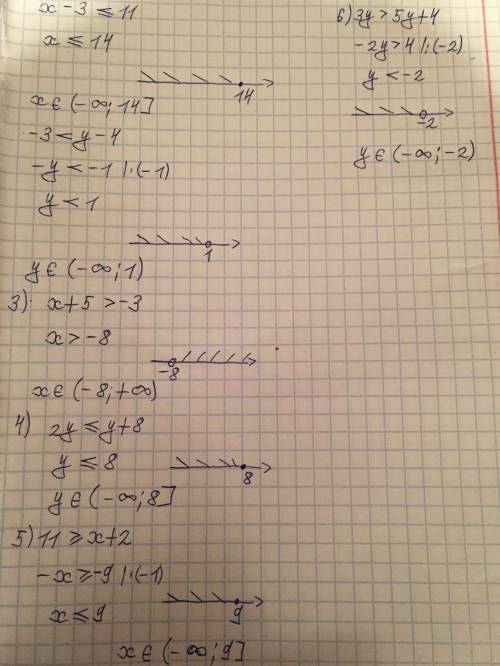 x - 3 ≤ 11
x ≤ 14
14
x ∈ (-∞; 14]
-3 < y - 4
-y < -1 | · (-1)
y < 1
1
y ∈ (-∞; 1)
3) x + 5 > -3
x > -8
-8
x ∈ (-8; +∞)
4) 2y ≤ y + 8
y ≤ 8
8
y ∈ (-∞; 8]
5) 11 ≥ x + 2
-x ≥ -9 | · (-1)
x ≤ 9
9
x ∈ (-∞; 9]
6) 3y > 5y + 4
-2y > 4 | : (-2)
y < -2
-2
y ∈ (-∞; -2)